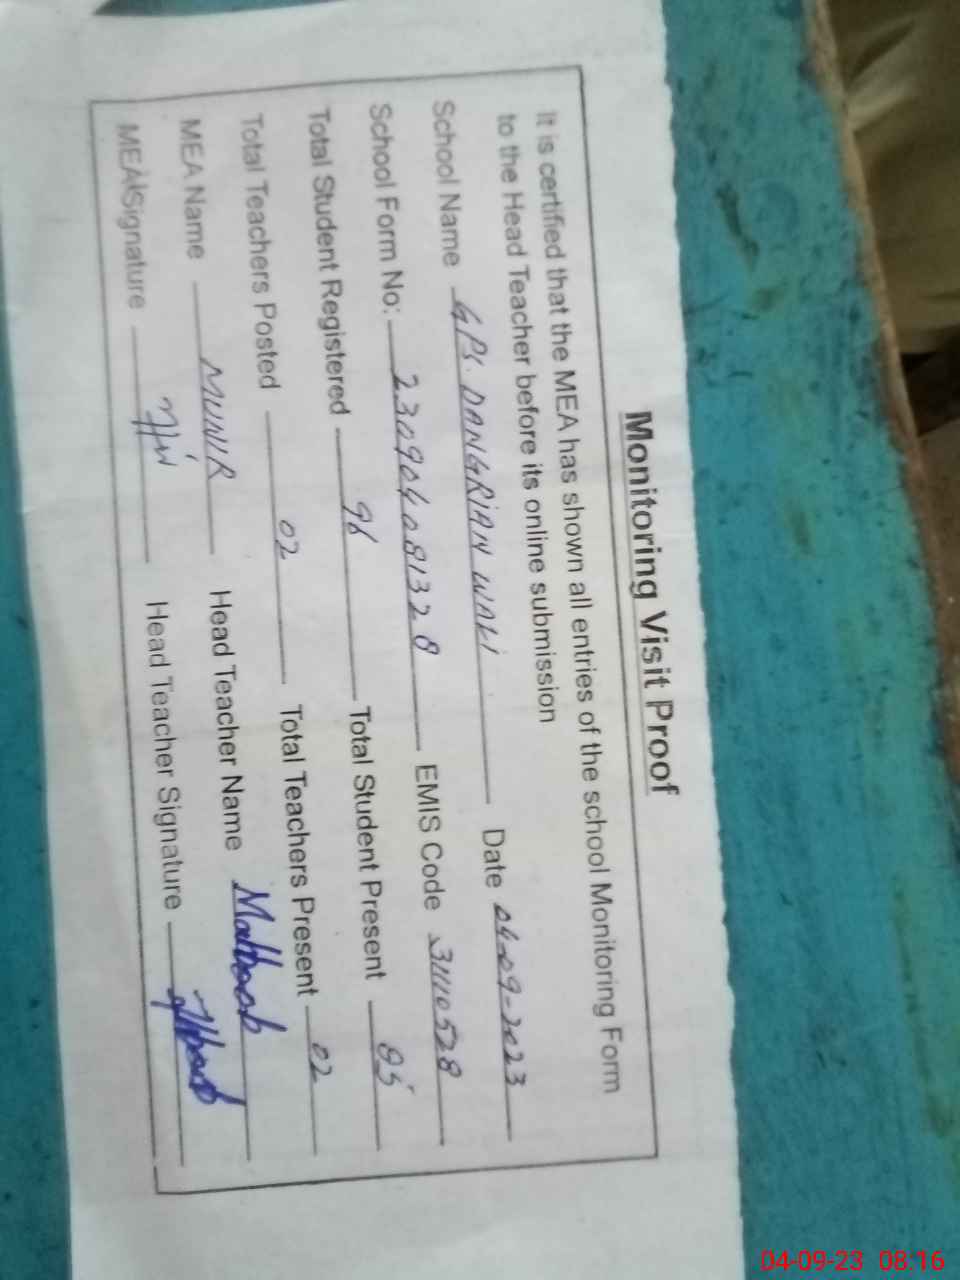 Monitoring Visit Proof
It is certified that the MEA has shown all entries of the school Monitoring Form
to the Head Teacher before its online submission
School Name GPS. DANGRIAN WALI Date 04-09-2023
School Form No: 230904081328 EMIS Code 31110528
Total Student Registered 96 Total Student Present 85
Total Teachers Posted 02 Total Teachers Present 02
MEA Name MUNIR Head Teacher Name Mahboob
MEA Signature Head Teacher Signature
04-09-23 08:16